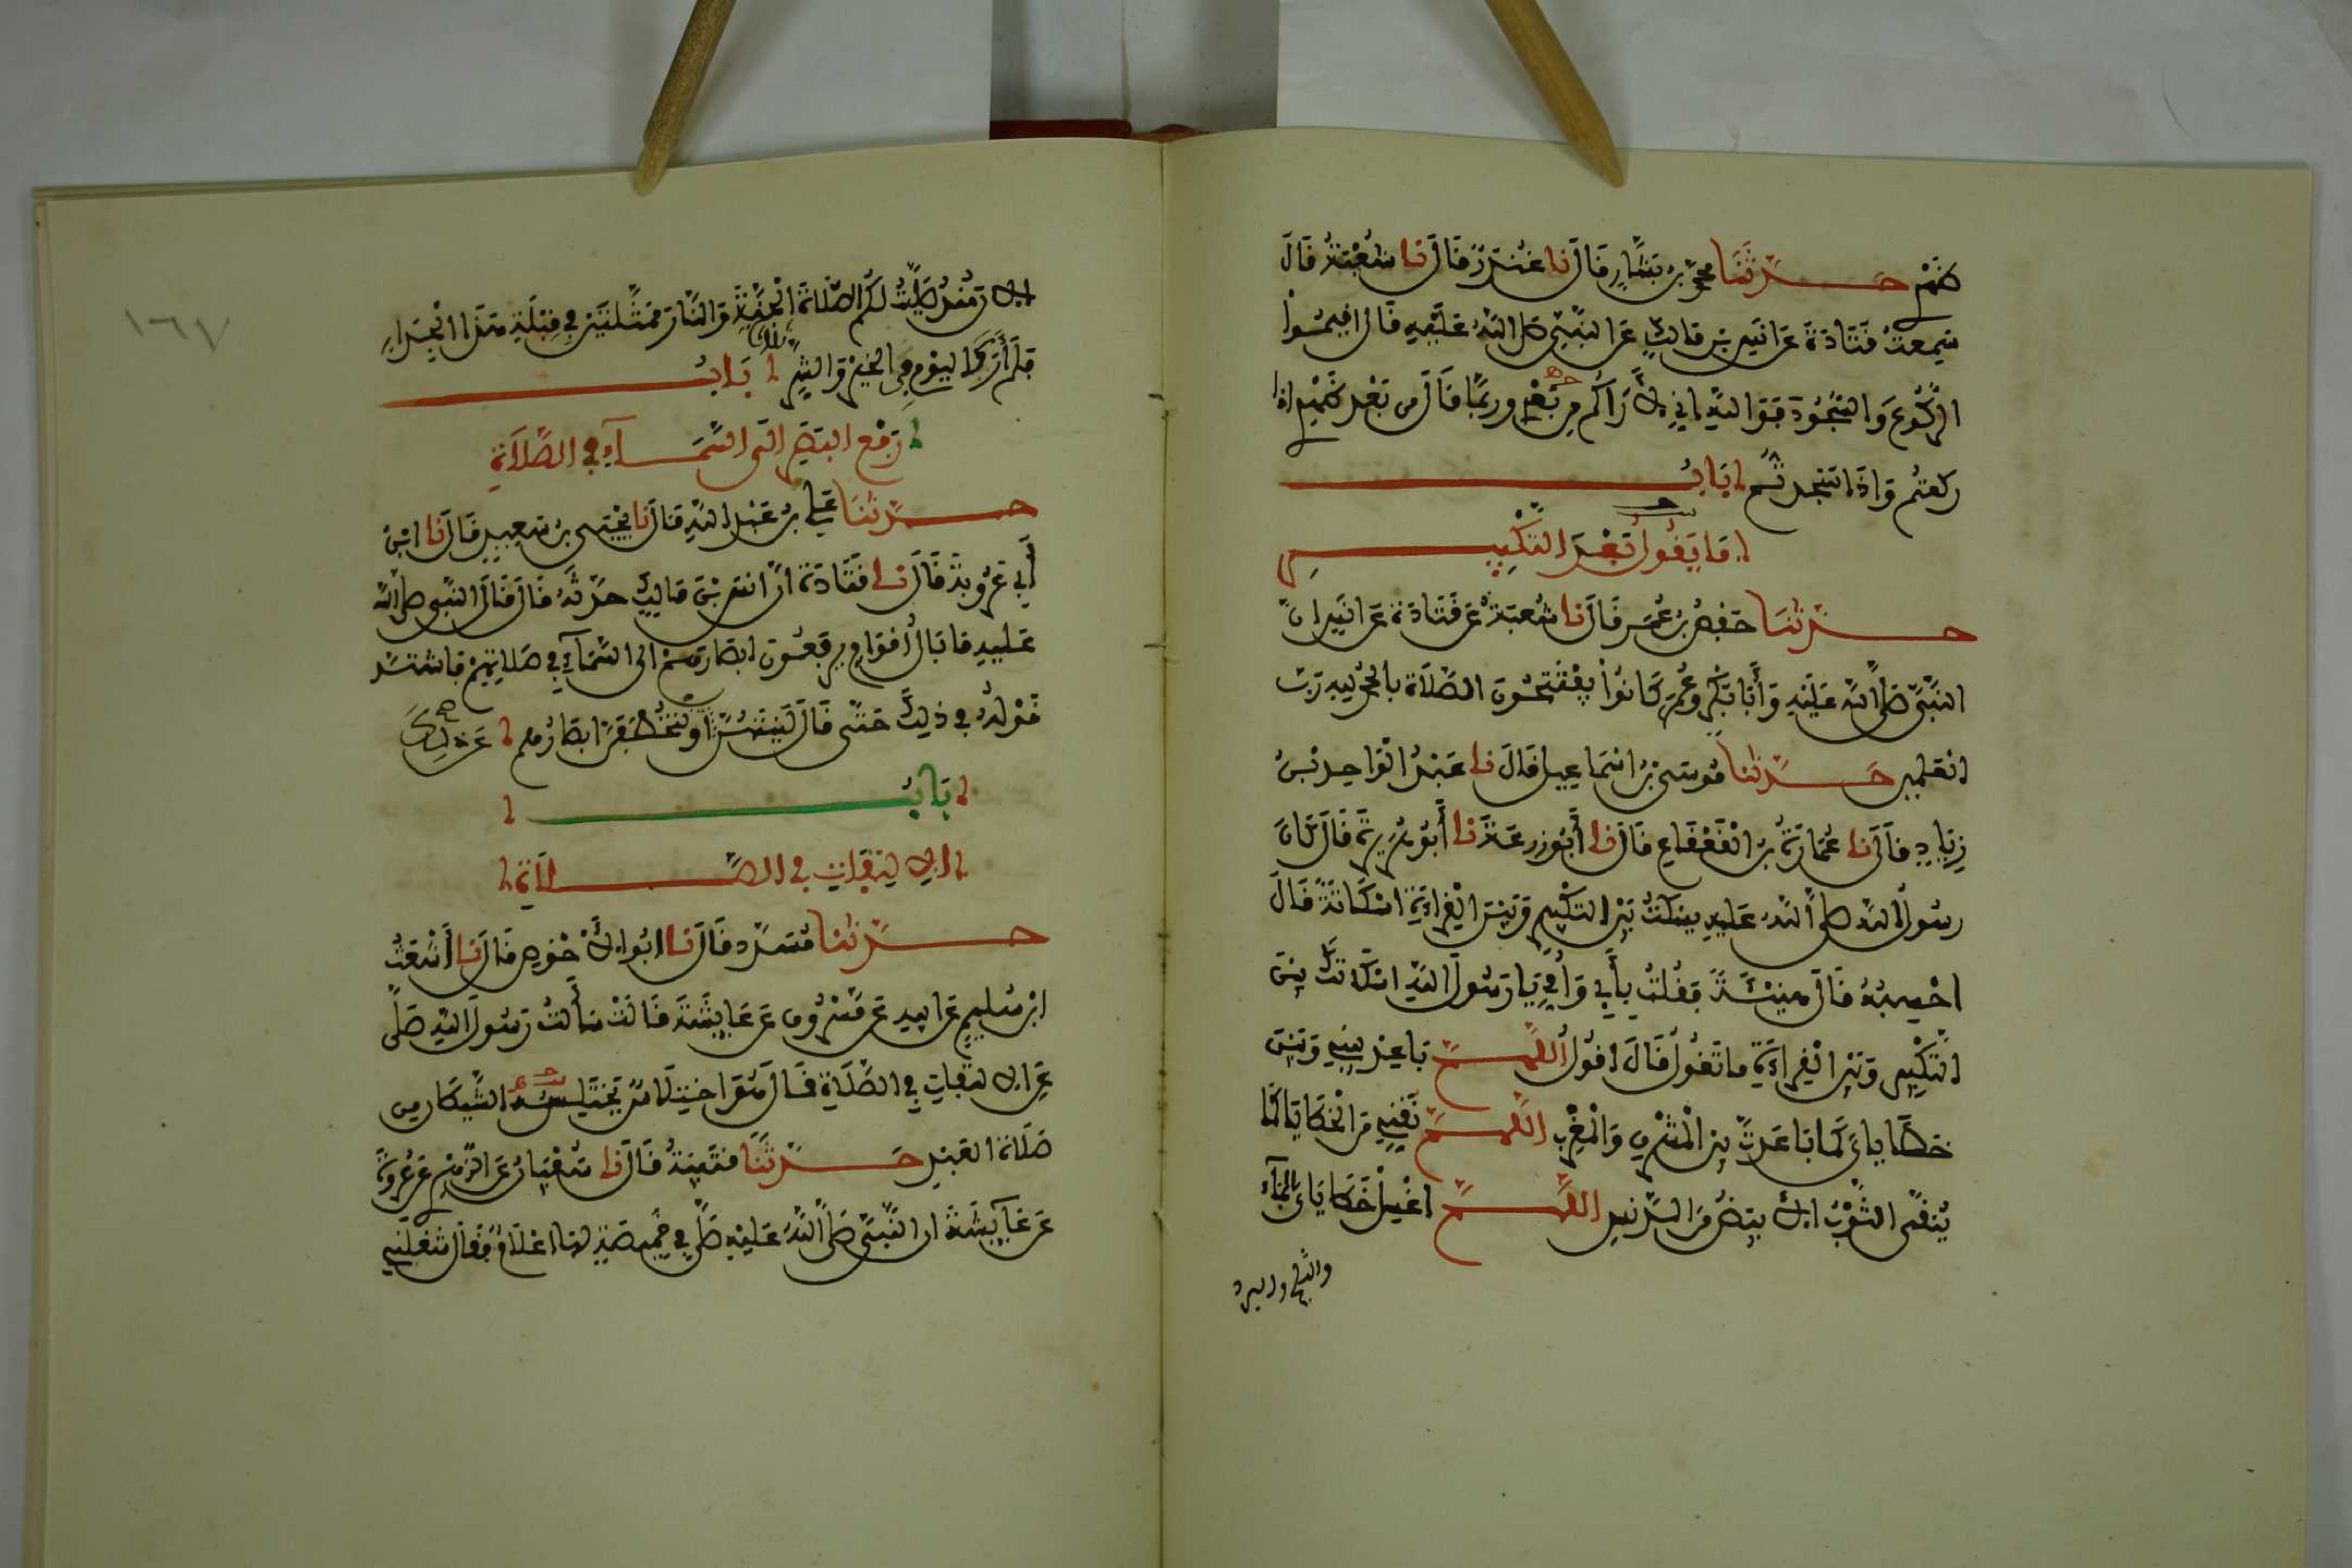 ظهري حدثنا محمد بن بشار قال نا غندر قال نا شعبة قال
سمعت قتادة عن انس بن مالك عن النبي صلى الله عليه قال اقيموا
الركوع والسجود فوالله اني لأراكم من بعدي وربما قال من بعد ظهري اذا
ركعتم واذا سجدتم باب
ما يقول بعد التكبير
حدثنا حفص بن عمر قال نا شعبة عن قتادة عن انس ان
النبي صلى الله عليه وأبا بكر وعمر كانوا يفتتحون الصلاة بالحمد لله رب
العلمين حدثنا موسى بن اسماعيل قال نا عبد الواحد بن
زياد قال نا عمارة بن القعقاع قال نا أبو زرعة نا أبو هريرة قال كان
رسول الله صلى الله عليه يسكت بين التكبير وبين القراءة اسكاتة قال
احسبه قال هنية فقلت بأبي وأمي يا رسول الله اسكاتك بين
التكبير وبين القراءة ما تقول قال اقول اللهم باعد بيني وبين
خطاياي كما باعدت بين المشرق والمغرب اللهم نقني من الخطايا كما
ينقى الثوب الابيض من الدنس اللهم اغسل خطاياي بالماء
والثلج والبرد
١٦٧
الان منذ صليت لكم الصلاة الجنة والنار ممثلتين في قبلة هذا الجدار
فلم أر كاليوم في الخير والشر ثلاثا باب
رفع البصر الى السماء في الصلاة
حدثنا علي بن عبد الله قال نا يحيى بن سعيد قال نا ابن
أبي عروبة قال نا قتادة ان انس بن مالك حدثه قال قال النبي صلى الله
عليه ما بال أقوام يرفعون ابصارهم الى السماء في صلاتهم فاشتد
قوله في ذلك حتى قال لينتهن او لتخطفن ابصارهم عن ذلك
باب
الالتفات في الصلاة
حدثنا مسدد قال نا ابو الأحوص قال نا أشعث
ابن سليم عن ابيه عن مسروق عن عايشة قالت سألت رسول الله صلى
عن الالتفات في الصلاة فقال هو اختلاس يختلسه الشيطان من
صلاة العبد حدثنا قتيبة قال نا سفيان عن الزهري عن عروة
عن عايشة ان النبي صلى الله عليه صلى في خميصة لها اعلام فقال شغلني